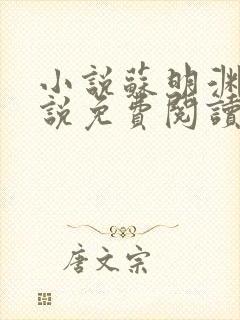 小说蘇明淵
說免費閱讀
唐文宗